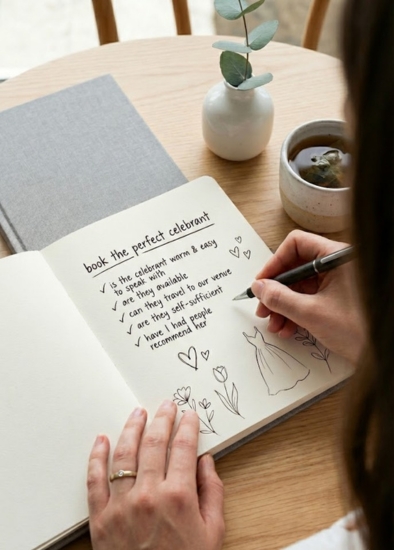 book the perfect celebrant
✓ is the celebrant warm & easy
to speak with
✓ are they available
✓ can they travel to our venue
✓ are they self-sufficient
✓ have I had people
recommend her